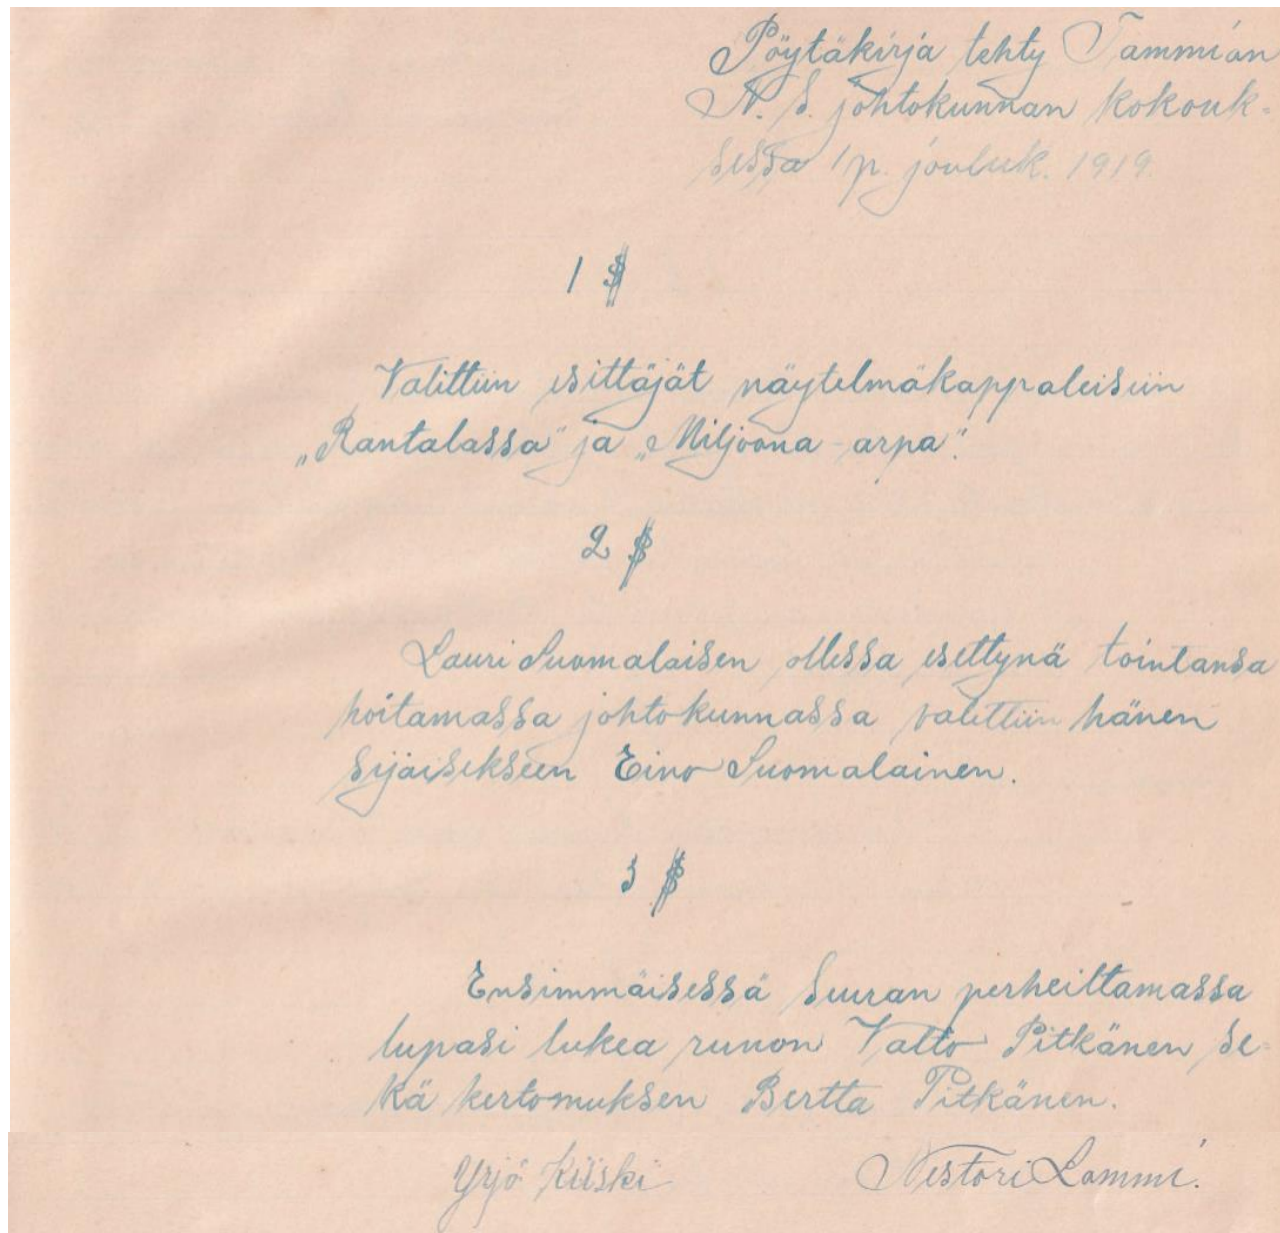 Pöytäkirja tehty Tammiân
N. S. johtokunnan kokouk-
sessa 1 p. jouluk. 1919.
1 §
Valittiin esittäjät näytelmäkappaleisiin
„Rantalassa" ja „Miljoona-arpa".
2 §
Lauri Suomalaisen ollessa esettynä tointansa
hoitamassa johtokunnassa valittiin hänen
sijaisekseen Eino Suomalainen.
3 §
Ensimmäisessä Seuran perheiltamassa
lupasi lukea runon Valto Pitkänen se-
kä kertomuksen Bertta Pitkänen.
Yrjö Kiiski Nestori Lammi.